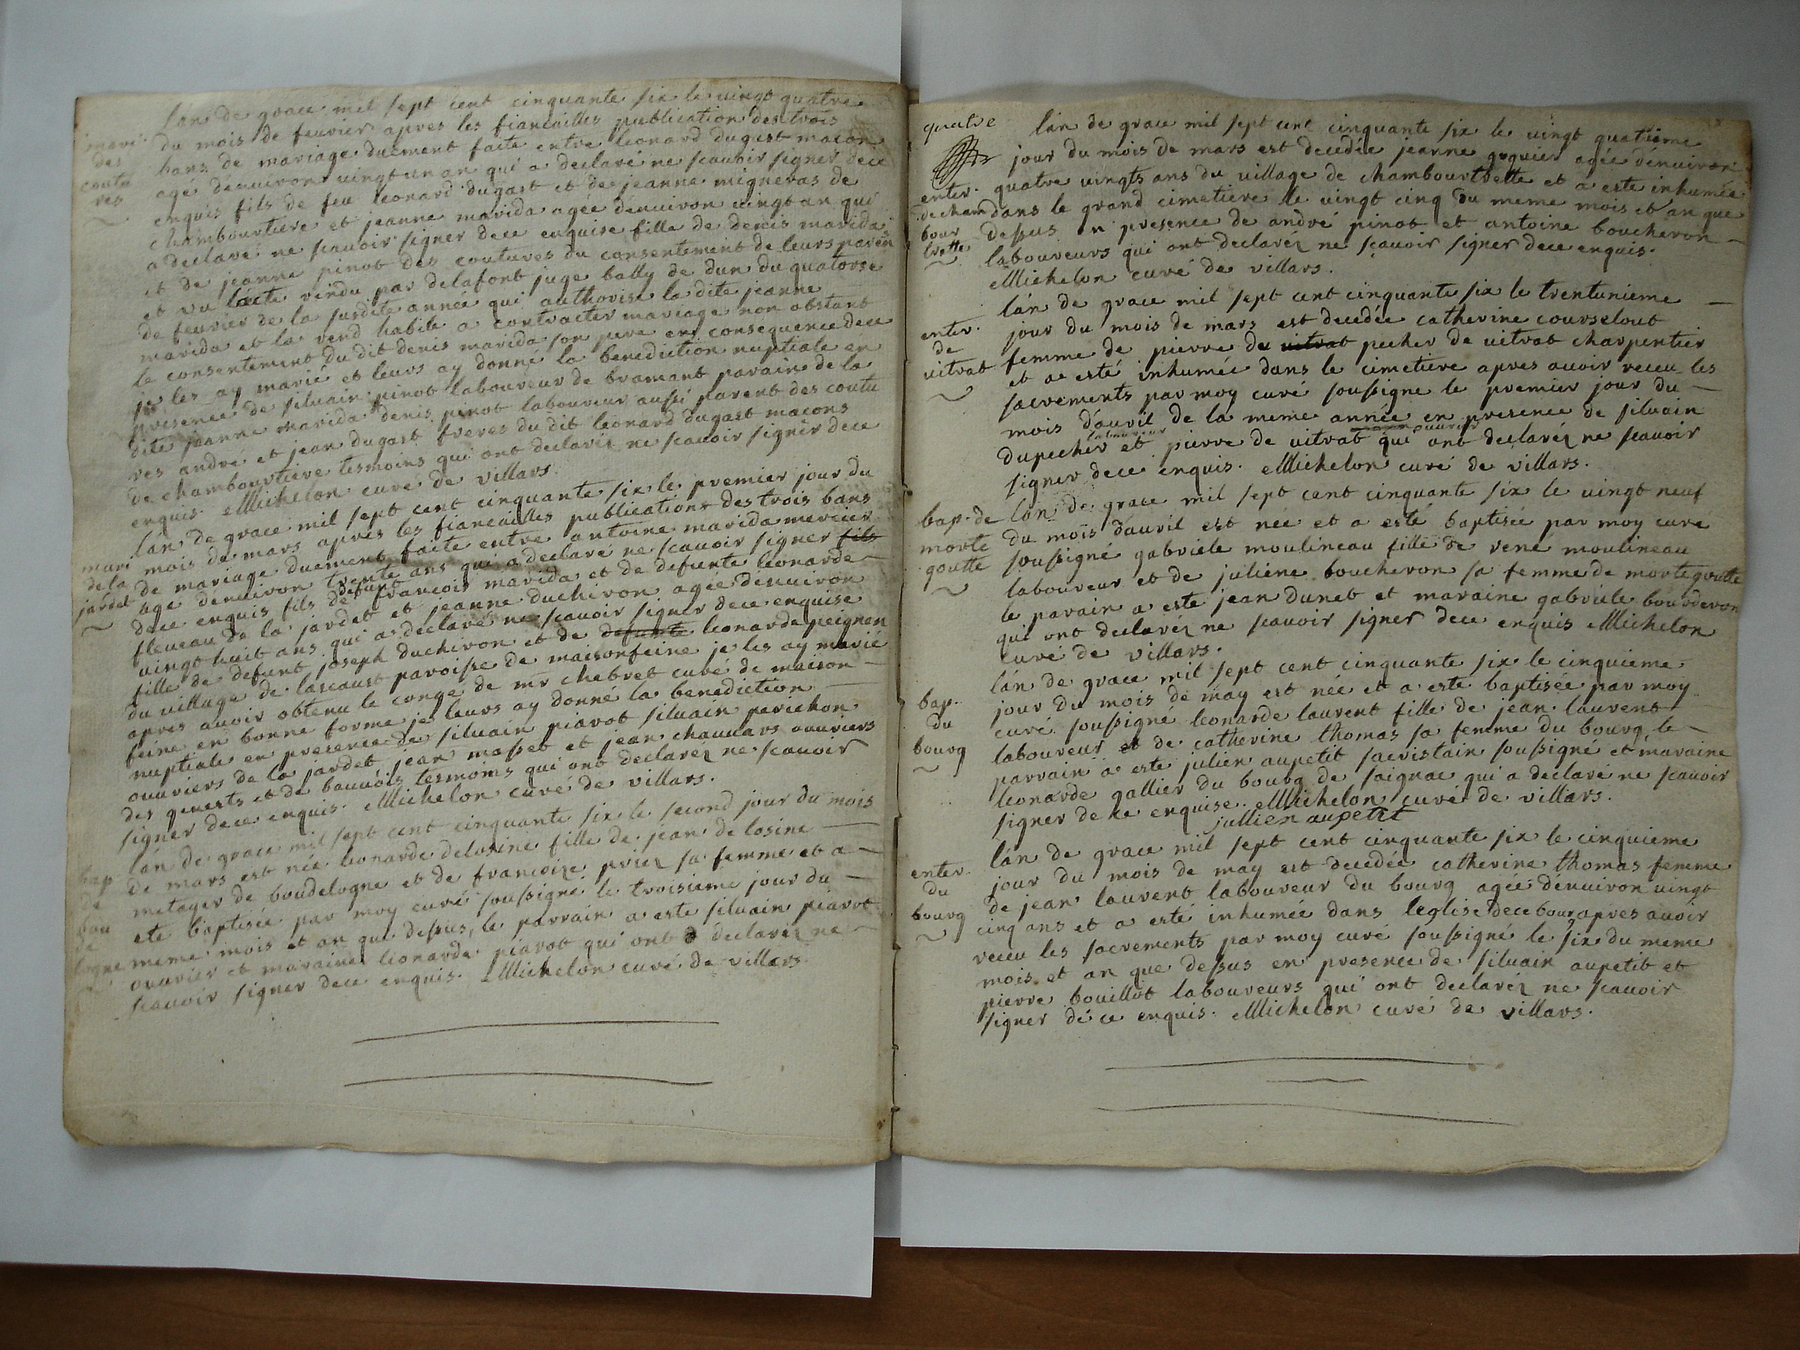 lan de grace mil sept cent cinquante six le vingt quatre
mari du mois de feuvier apres les fiancailles publication des trois
des bans de mariage duement faite entre leonard dugast macon
coutu agé denuiron vingt un an qui a declaré ne scauoir signer dece
res enquis fils de feu leonard dugast et de jeanne migneras de
chambourtiere et jeanne marida agée denuiron vingt an qui
a declaré ne scauoir signer dece enquise fille de denis marida
et de jeanne pinot des coutures du consentement de leurs paren
et vu lacte rendu par delafont juge bally de dun du quatorse
de feurier de la susdite année qui authorise la dite jeanne
marida et la rend habile a contracter mariage non obstant
le consentement du dit denis marida son pere en consequence dece
je les ay marié et leurs ay donné la benediction nuptiale en
presence de siluain pinot laboureur de bramant parain de la
dite jeanne marida denis pinot laboureur aussi parent des coutu
res andré et jean dugast freres du dit leonard dugast macons
de chambourtiere tesmoins qui ont declarez ne scauoir signer dece
enquis. Michelon curé de villars.
lan de grace mil sept cent cinquante six le premier jour du
mois de mars apres les fiancailles publications des trois bans
mari de mariage duement faite entre antoine marida mercier
de la agé denuiron trente ans qui a declaré ne scauoir signer fils
jardet dece enquis fils de defunt francois marida et de defunte leonarde
fleureau de la jardet et jeanne ducheron agée denuiron
vingt huit ans qui a declarée ne scauoir signer dece enquise
fille de defunt joseph ducheron et de defunte leonarde peignon
du village de lascaust paroisse de maisonfeine je les ay marié
apres auoir obtenu le conge de mr chebret curé de maison
feine en bonne forme je leurs ay donné la benediction
nuptiale en presence de siluain piarot siluain perichon
ouuriers de la jardet jean masset et jean chauuars ouuriers
des genests et de bauuois tesmoins qui ont declarez ne scauoir
signer dece enquis. Michelon curé de villars.
lan de grace mil sept cent cinquante six le second jour du mois
bap de mars est née leonarde delosine fille de jean de losine
de metayer de boudelogne et de francoize priez sa femme et a
bou ete baptisée par moy curé soussigné le troisieme jour du
de meme mois et an que dessus, le parrain a este siluain piarot
logne ouurier et maraine leonarde piarot qui ont declarez ne
scauoir signer dece enquis. Michelon curé de villars.
quatre
lan de grace mil sept cent cinquante six le vingt quatième
jour du mois de mars est decedée jeanne goguier agée denuiron
enter. quatre vingts ans du village de chambourtbette et a este inhumée
de cham dans le grand cimetiere le vingt cinq du meme mois et an que
bour dessus en presence de andré pinot et antoine boucheron
trette laboureurs qui ont declaréz ne scauoir signer dece enquis.
Michelon curé de villars.
lan de grace mil sept cent cinquante six le trentunieme
enter. jour du mois de mars est decedée catherine courselout
de femme de pierre de vitrat pecher de vitrat charpentier
vitrat et a esté inhumée dans le cimetiere apres auoir receu les
sacrements par moy curé soussigne le premier jour du
mois dauril de la meme année en presence de siluain
laboureur
dupecher et pierre de vitrat qui ont declaréz ne scauoir
signer dece enquis. Michelon curé de villars.
bap. de lan de grace mil sept cent cinquante six le vingt neuf
morte du mois dauril est née et a esté baptisée par moy curé
goutte soussigné gabriele moulineau fille de rene moulineau
laboureur et de juliene boucheron sa femme de mortegoutte
le parain a este jean dunet et maraine gabriele bourderon
qui ont declaréz ne scauoir signer dece enquis Michelon
curé de villars.
lan de grace mil sept cent cinquante six le cinquieme
bap. jour du mois de may est née et a este baptisée par moy
du curé soussigné leonarde laurent fille de jean laurent
bourg laboureur et de catherine thomas sa femme du bourg, le
parrain a este julien aupetit sacristain soussigné et maraine
leonarde gallier du bourg de saignac qui a declaré ne scauoir
signer de ce enquise. Michelon curé de villars.
jullien aupetit
lan de grace mil sept cent cinquante six le cinquieme
enter. jour du mois de may est decedée catherine thomas femme
du de jean laurent laboureur du bourg agée denuiron vingt
bourg cinq ans et a esté inhumée dans leglise dece bourg apres auoir
receu les sacrements par moy curé soussigné le six du meme
mois et an que dessus en presence de siluain aupetit et
pierre bouillot laboureurs qui ont declaréz ne scauoir
signer de ce enquis. Michelon curé de villars.